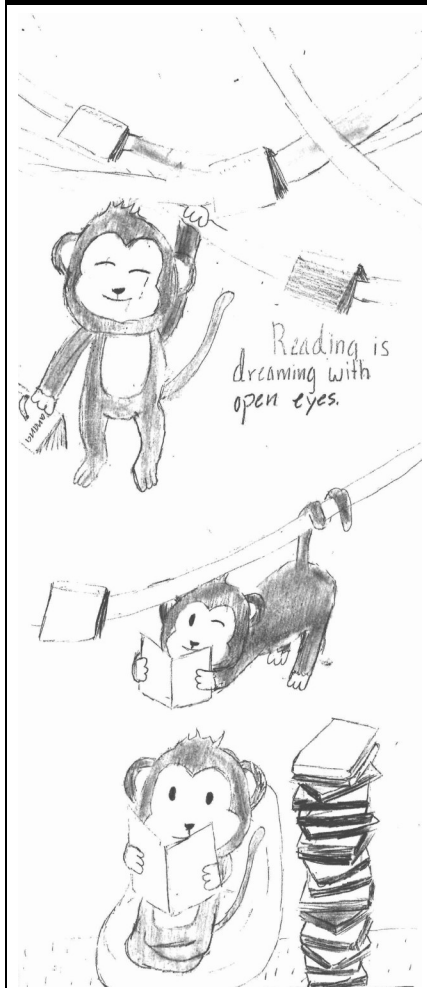 Reading is
dreaming with
open eyes.